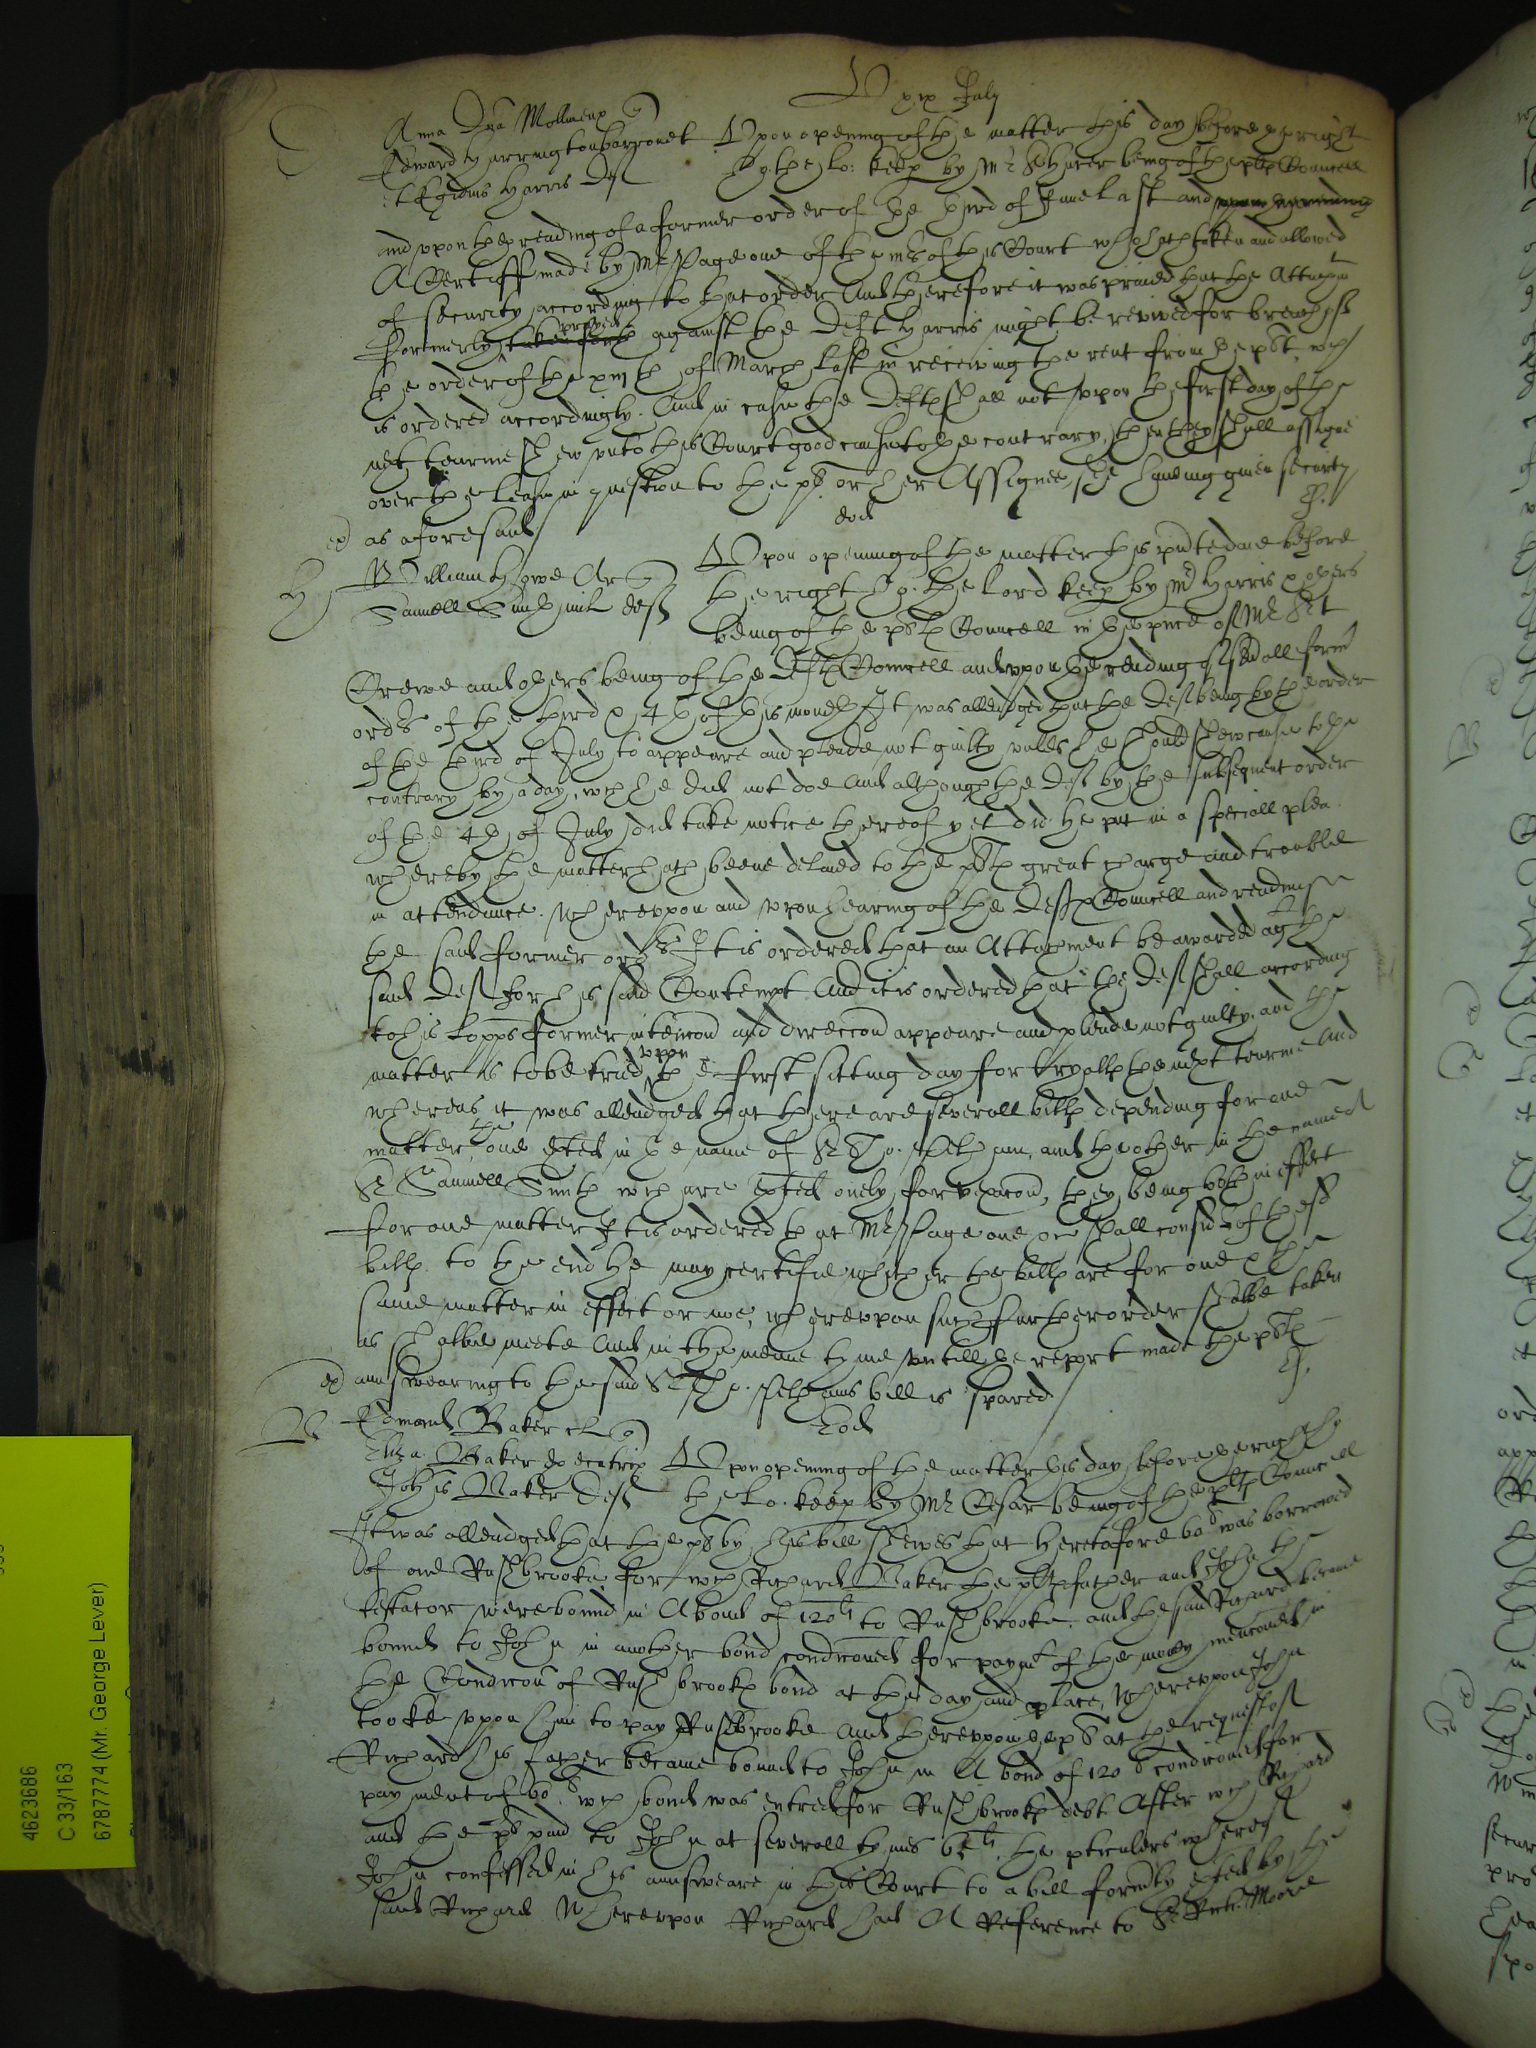 xix July
Anna Dna Mollineux
Edward Harrington barronet Upon opening of the matter this day before the right
et Egidius Harris Def ho: the lo: keep by Mr being of the plts Councell
and upon the reading of a former order of the third of June last and
A Certiff made by Mr Page one of the mrs of this Court who hath taken and allowed
of security according to that order And therefore it was prayed that the Attachmt
formerly against the Deft Harris might be revived for breach of
the order of the of March last in receiving the rent from the wch
is ordered accordingly. And in case the Defts shall not upon the first day of the
next tearme shew unto this Court good cause to the contrary, then they shall assigne
over the lease in question to the pl or her Assignee, she haveing given security
as aforesaid
William Howe Ar
Samuell Smyth mil deft
Upon opening of the matter this pnte daie before
the right ho. the Lord keep by Mr Harris & others
being of the plts Councell in the pnce of Mr
Crewe and others being of the Defts Councell and upon the reading of severall form
ordrs of the third & 4th of this moneth It was alleadged that the Def being by the order
of the third of July to appeare and pleade not guilty unles he could shew cause to the
contrary by a day, wch he did not doe And although the Def by the subsequent order
of the 4th of July did take notice thereof yet did he put in a speciall plea
whereby the matter hath beene delaied to the plts great charge and trouble
in attendance. Whereupon and upon hearing of the Defts Councell and reading
the said former ordrs It is ordered that an Attachment be awarded agt the
said Def for his said Contempt And it is ordered that the Def shall according
to his lopps former intencon and direccon appeare and pleade not guilty, and the
matter is to be tried upon the first sitting day for tryalls the next tearme And
whereas it was alleadged that there are severall bills depending for one
matter, the one exted in the name of Sr and the other in the name of
Sr Samuell Smith wch are exted onely for vexacon, they being both in effect
for one matter It is ordered that Mr Page one &c shall consider of thes
bills to the end he may certifie whether the bills are for one & the
same matter in effect or noe, whereupon such further order shalbe taken
as shalbe meete And in the meane tyme untill the report made the plts
answearing to the said Sr bill is spared
Eod
Edmond Baker
Eliza Baker executrix Upon opening of the matter this day before the right ho
Johis Baker Def the Lo. keep by Mr Cesar being of the plts Councell
It was alleadged that the pl by his bill shewes that heretofore 60l was borrowed
of one Rushbrooke, for wch Richard Baker the plts father and John the
testator were bound in A bond of 120li to Rushbrooke, and the said Richard became
bound to John in another bond condiconed for paymt of the money menconed in
the Condicon of Rushbrooks bond at the day and place, Whereupon John
tooke upon him to pay Rushbrooke And thereupon the pl at the request of
Richard his father became bound to John in A bond of 120l condiconed for
payment of 60l wch bond was entred for Rushbrooks debt After wch Richard
and the pl paid to John at severall tymes the pticulers whereof
John confessed in his answeare in this Court to a bill formerly exted by the
said Richard Whereupon Richard had A Reference to Sr Rich: Moore
4623686
C 33/163
6787774 (Mr. George Lever)